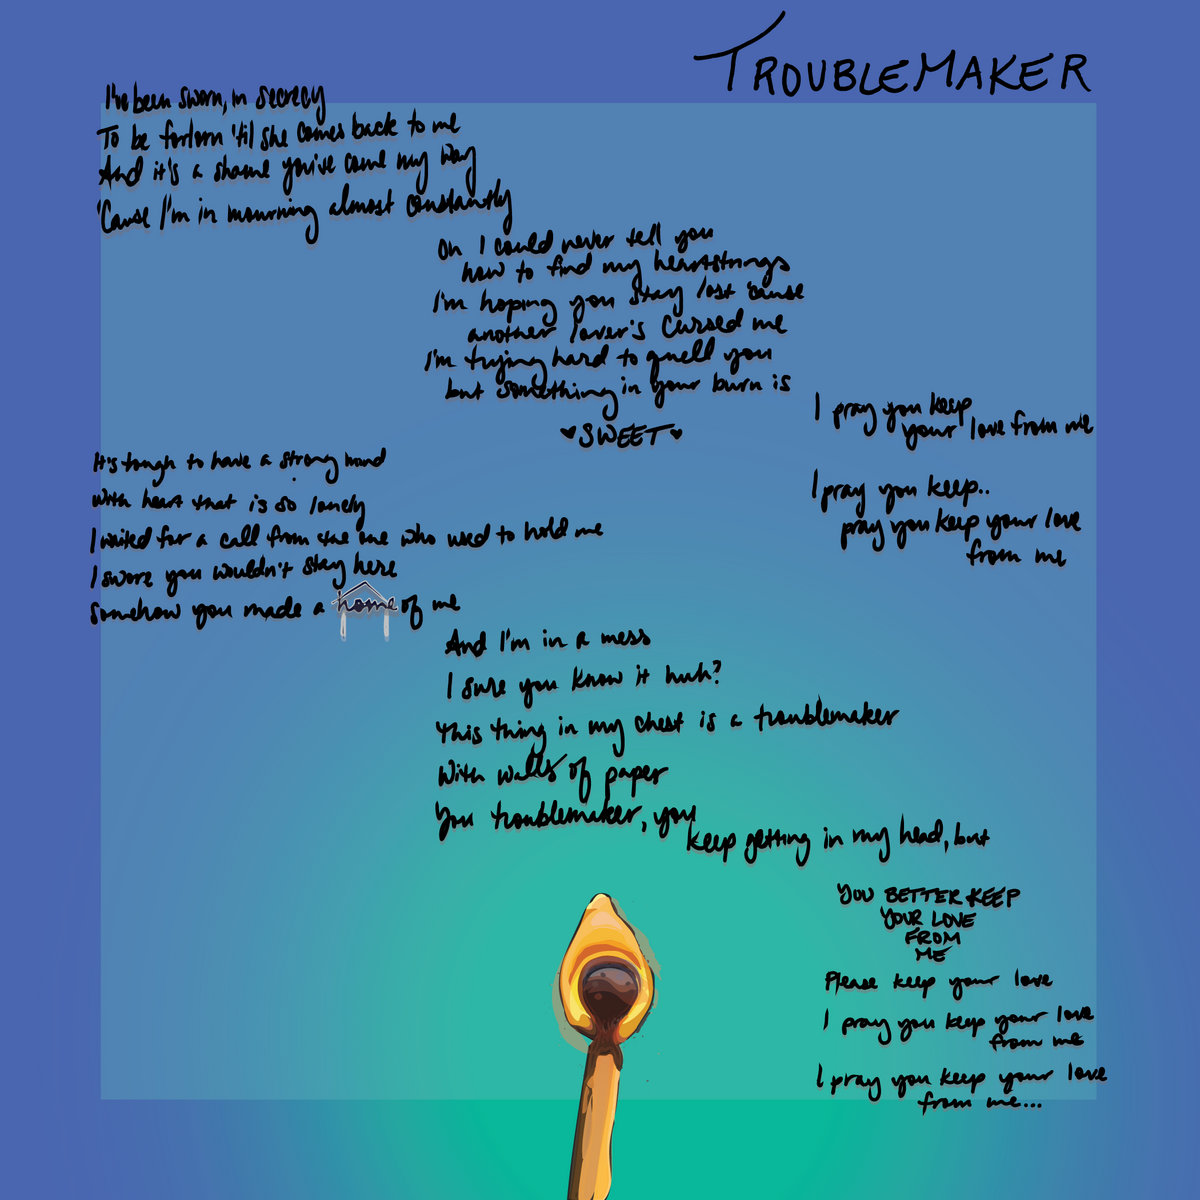 TROUBLEMAKER
I've been sworn, in secrecy
To be forlorn 'til she comes back to me
And it's a shame you've come my way
'Cause I'm in mourning almost constantly
Oh I could never tell you
how to find my heartstrings
I'm hoping you stay lost 'cause
another lover's cursed me
I'm trying hard to quell you
but something in your burn is
♥SWEET♥
I pray you keep
your love from me
I pray you keep..
pray you keep your love
from me
It's tough to have a strong mind
With heart that is so lonely
I waited for a call from the one who used to hold me
I swore you wouldn't stay here
Somehow you made a home of me
And I'm in a mess
I sure you know it huh?
This thing in my chest is a troublemaker
With walls of paper
You troublemaker, you
keep getting in my head, but
YOU BETTER KEEP
YOUR LOVE
FROM
ME
Please keep your love
I pray you keep your love
from me
I pray you keep your love
from me...